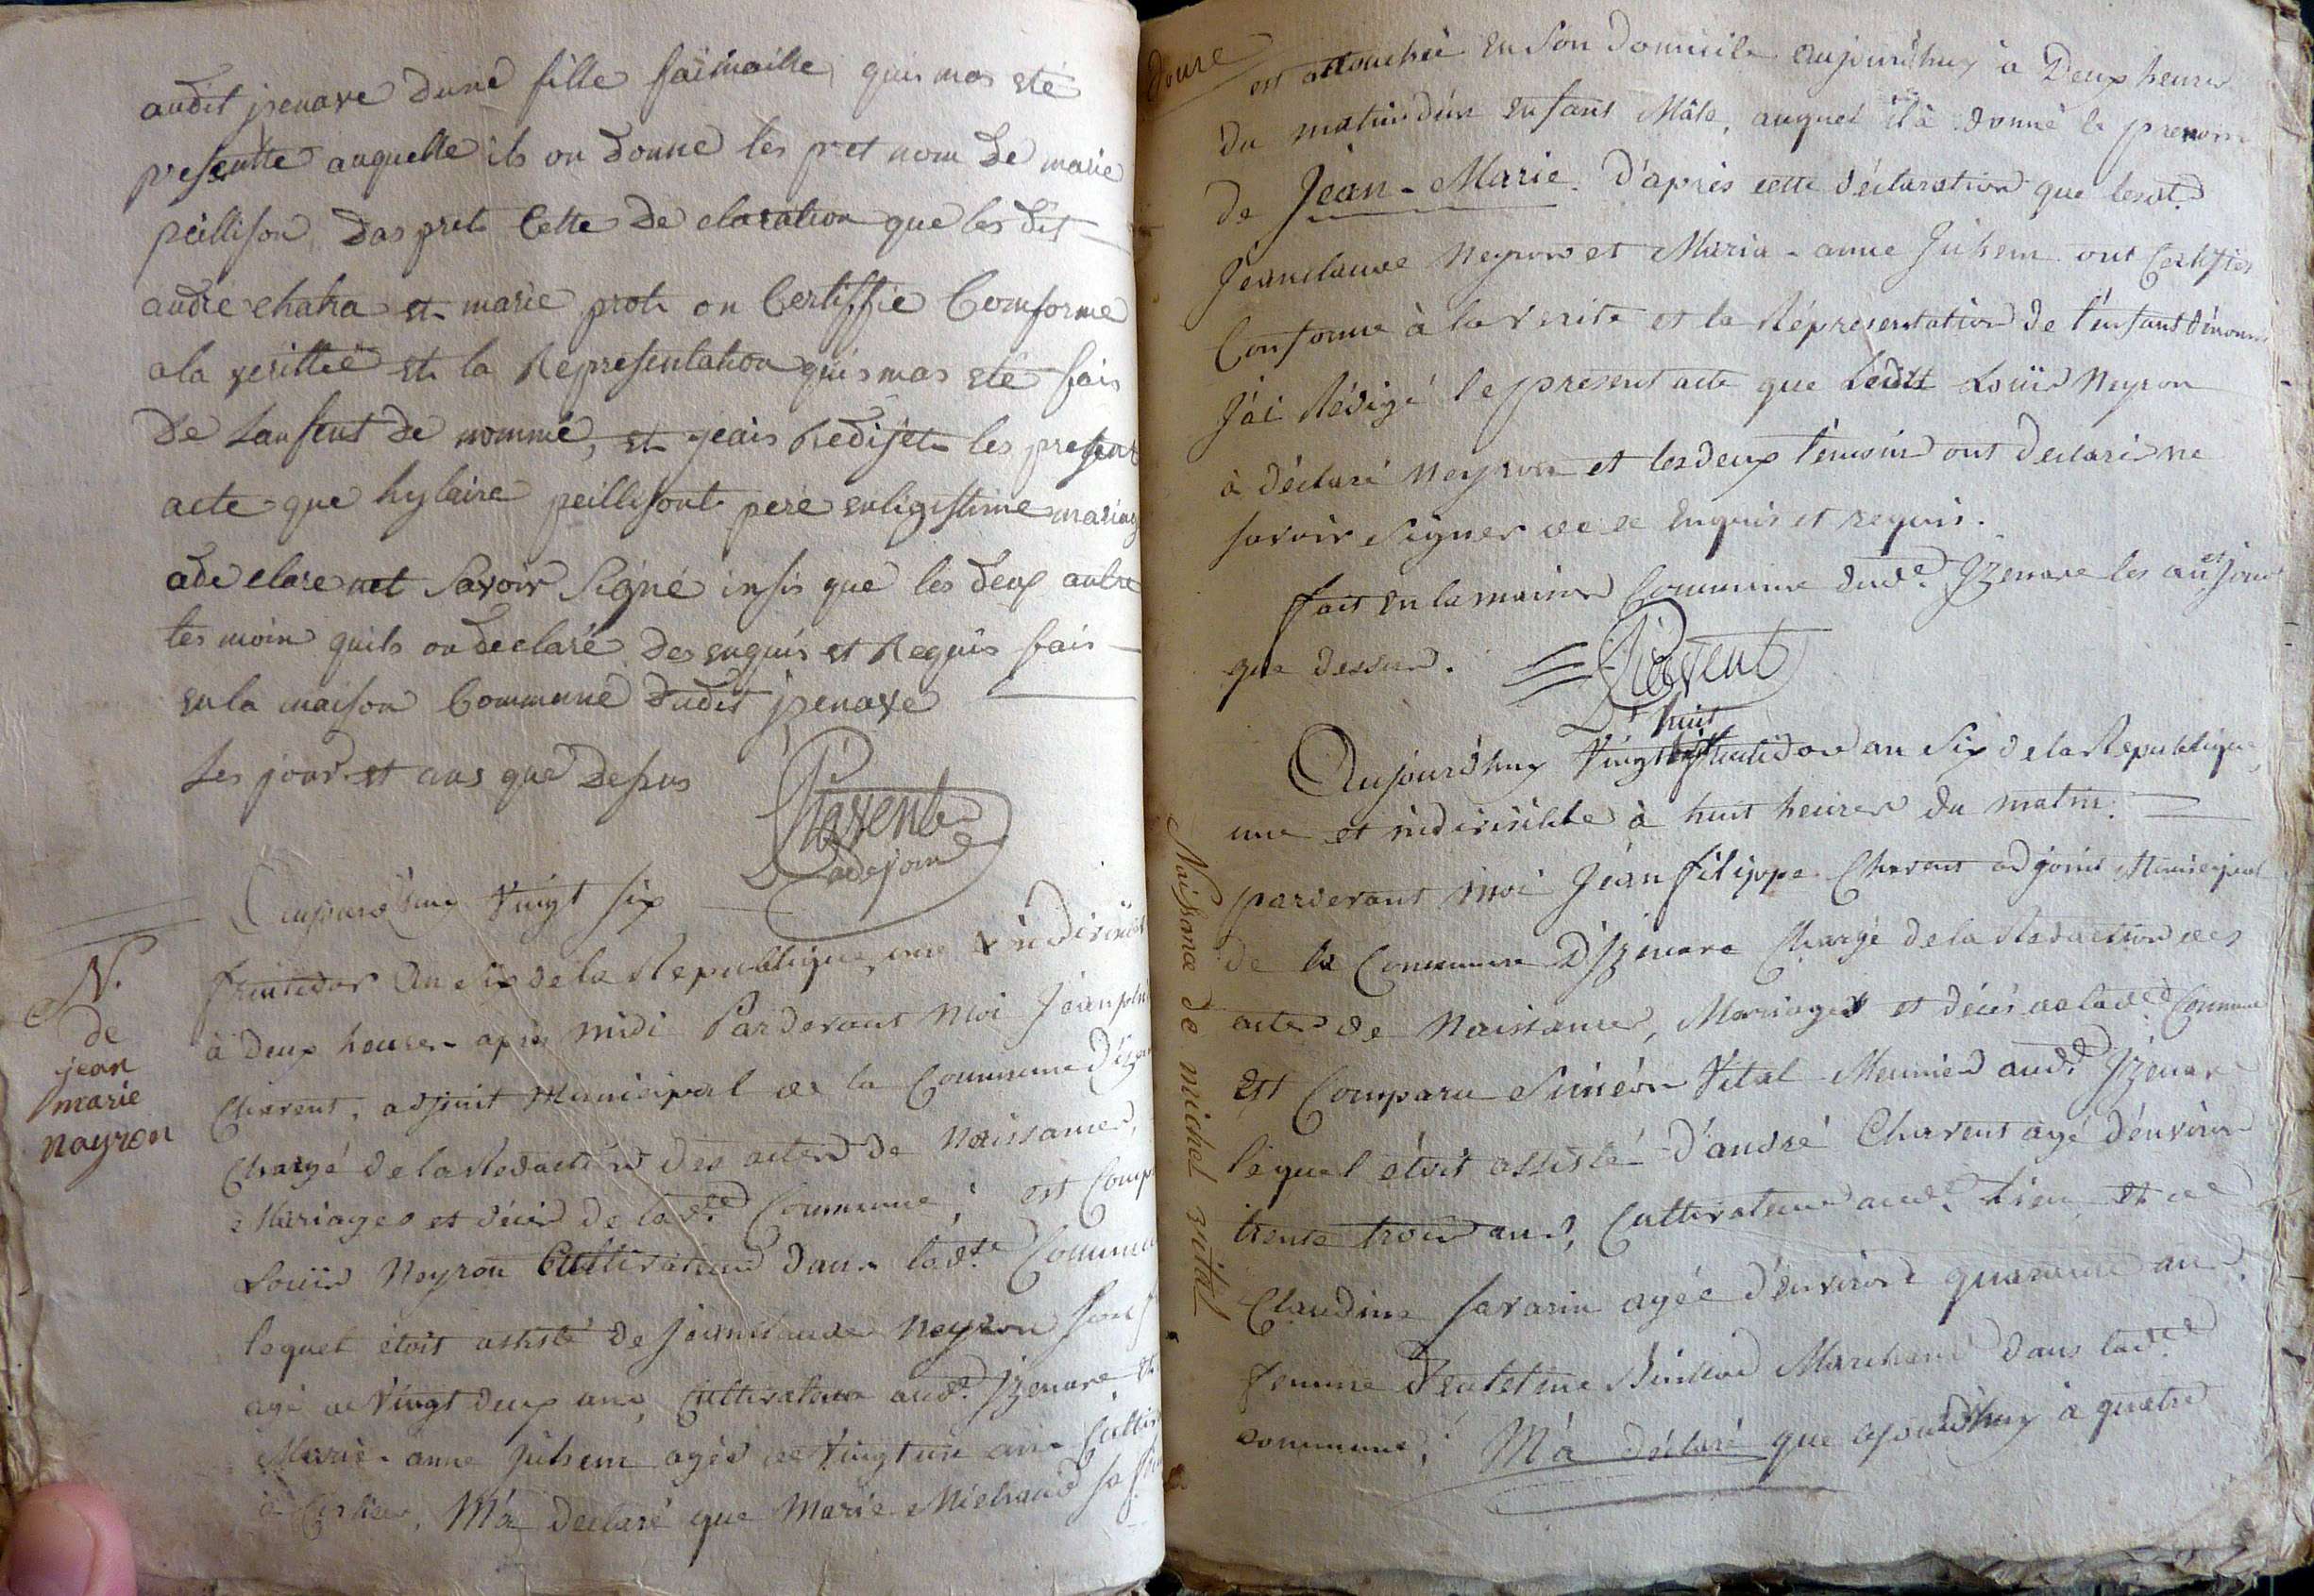 audit jzenave dune fille faimaille, quis mas eté
presentte auquelle ils on donne les pret nom de marie
peillison, das pret Cette de claration que les dit
andre chatra et marie prot on Certiffie Comforme
a la veritté et la Representation quis mas eté fais
de Lanfent de nommé, et jeais Redijet les present
acte que hylaire peillisont pere enligistime mariag
ade clare net Savoir Signé insis que les deux autre
tes moin quils on declaré des enquis et Requis fais
en la maison Commune dudit jzenave
Les jour et ans que desus
Charent
adejoin
N.
de
jean
marie
nayron
Aujourd'huy Vingt six
fructidor An six de la Republique, une & indivisib
à deux heures après midi Pardevant Moi Jean phi
Charent, adjoint Municipal de la Commune d'iz
Chargé de la Rédaction des actes de Naissances,
Mariages et décès de lad.te Commune; est Comp
Loüis Neyron Cultivateur dans lad.te Commu
lequel étoit assisté de Jeanclaude Neyron son
agé de Vingt deux ans, Cultivateur aud.t Jzenave, et
Marie-anne Juhem agée de Vingt un ans Cultiv
M'a declaré que Marie Michaud sa
doure
est accouchée en son domicile aujourd'huy à Deux heures
du matin d'un enfant Mâle, auquel il à donné le prenom
de Jean-Marie. D'après cette déclaration que lesd.t
Jeanclaude Neyron et Maria-anne Juhem ont Certifier
Conforme à la verité et la Répresentation de l'enfant dénommé
J'ai Rédigé le present acte que Ledit Loüis Neyron
à déclaré Neyron et les deux témoins ont declaré ne
savoir signer de ce Enquis et requis.
fait en la maison Commune dud.t Jzenave les an et jour
que dessus. Charent
huit
Aujourd'huy Vingt fructidor an Six de la Republique,
une et indivisible à huit heures du matin.
pardevant moi Jéan filippe Charent adjoint Municipal
de la Commune D'Jzenave Chargé de la Redaction des
actes de Naissances, Mariages et décés de lad.te Commune
Est Comparu Siméon Vital Meunier aud.t Jzenave
lequel étoit assisté d'andré Charent agé d'environ
trente trois ans, Cultivateur aud.t Lieu, et de
Claudine Savarin agée d'environ quarante ans
femme Marchand dans lad.te
commune; M'a déclaré que ajourd'huy à quatre
Naissance de michel vital